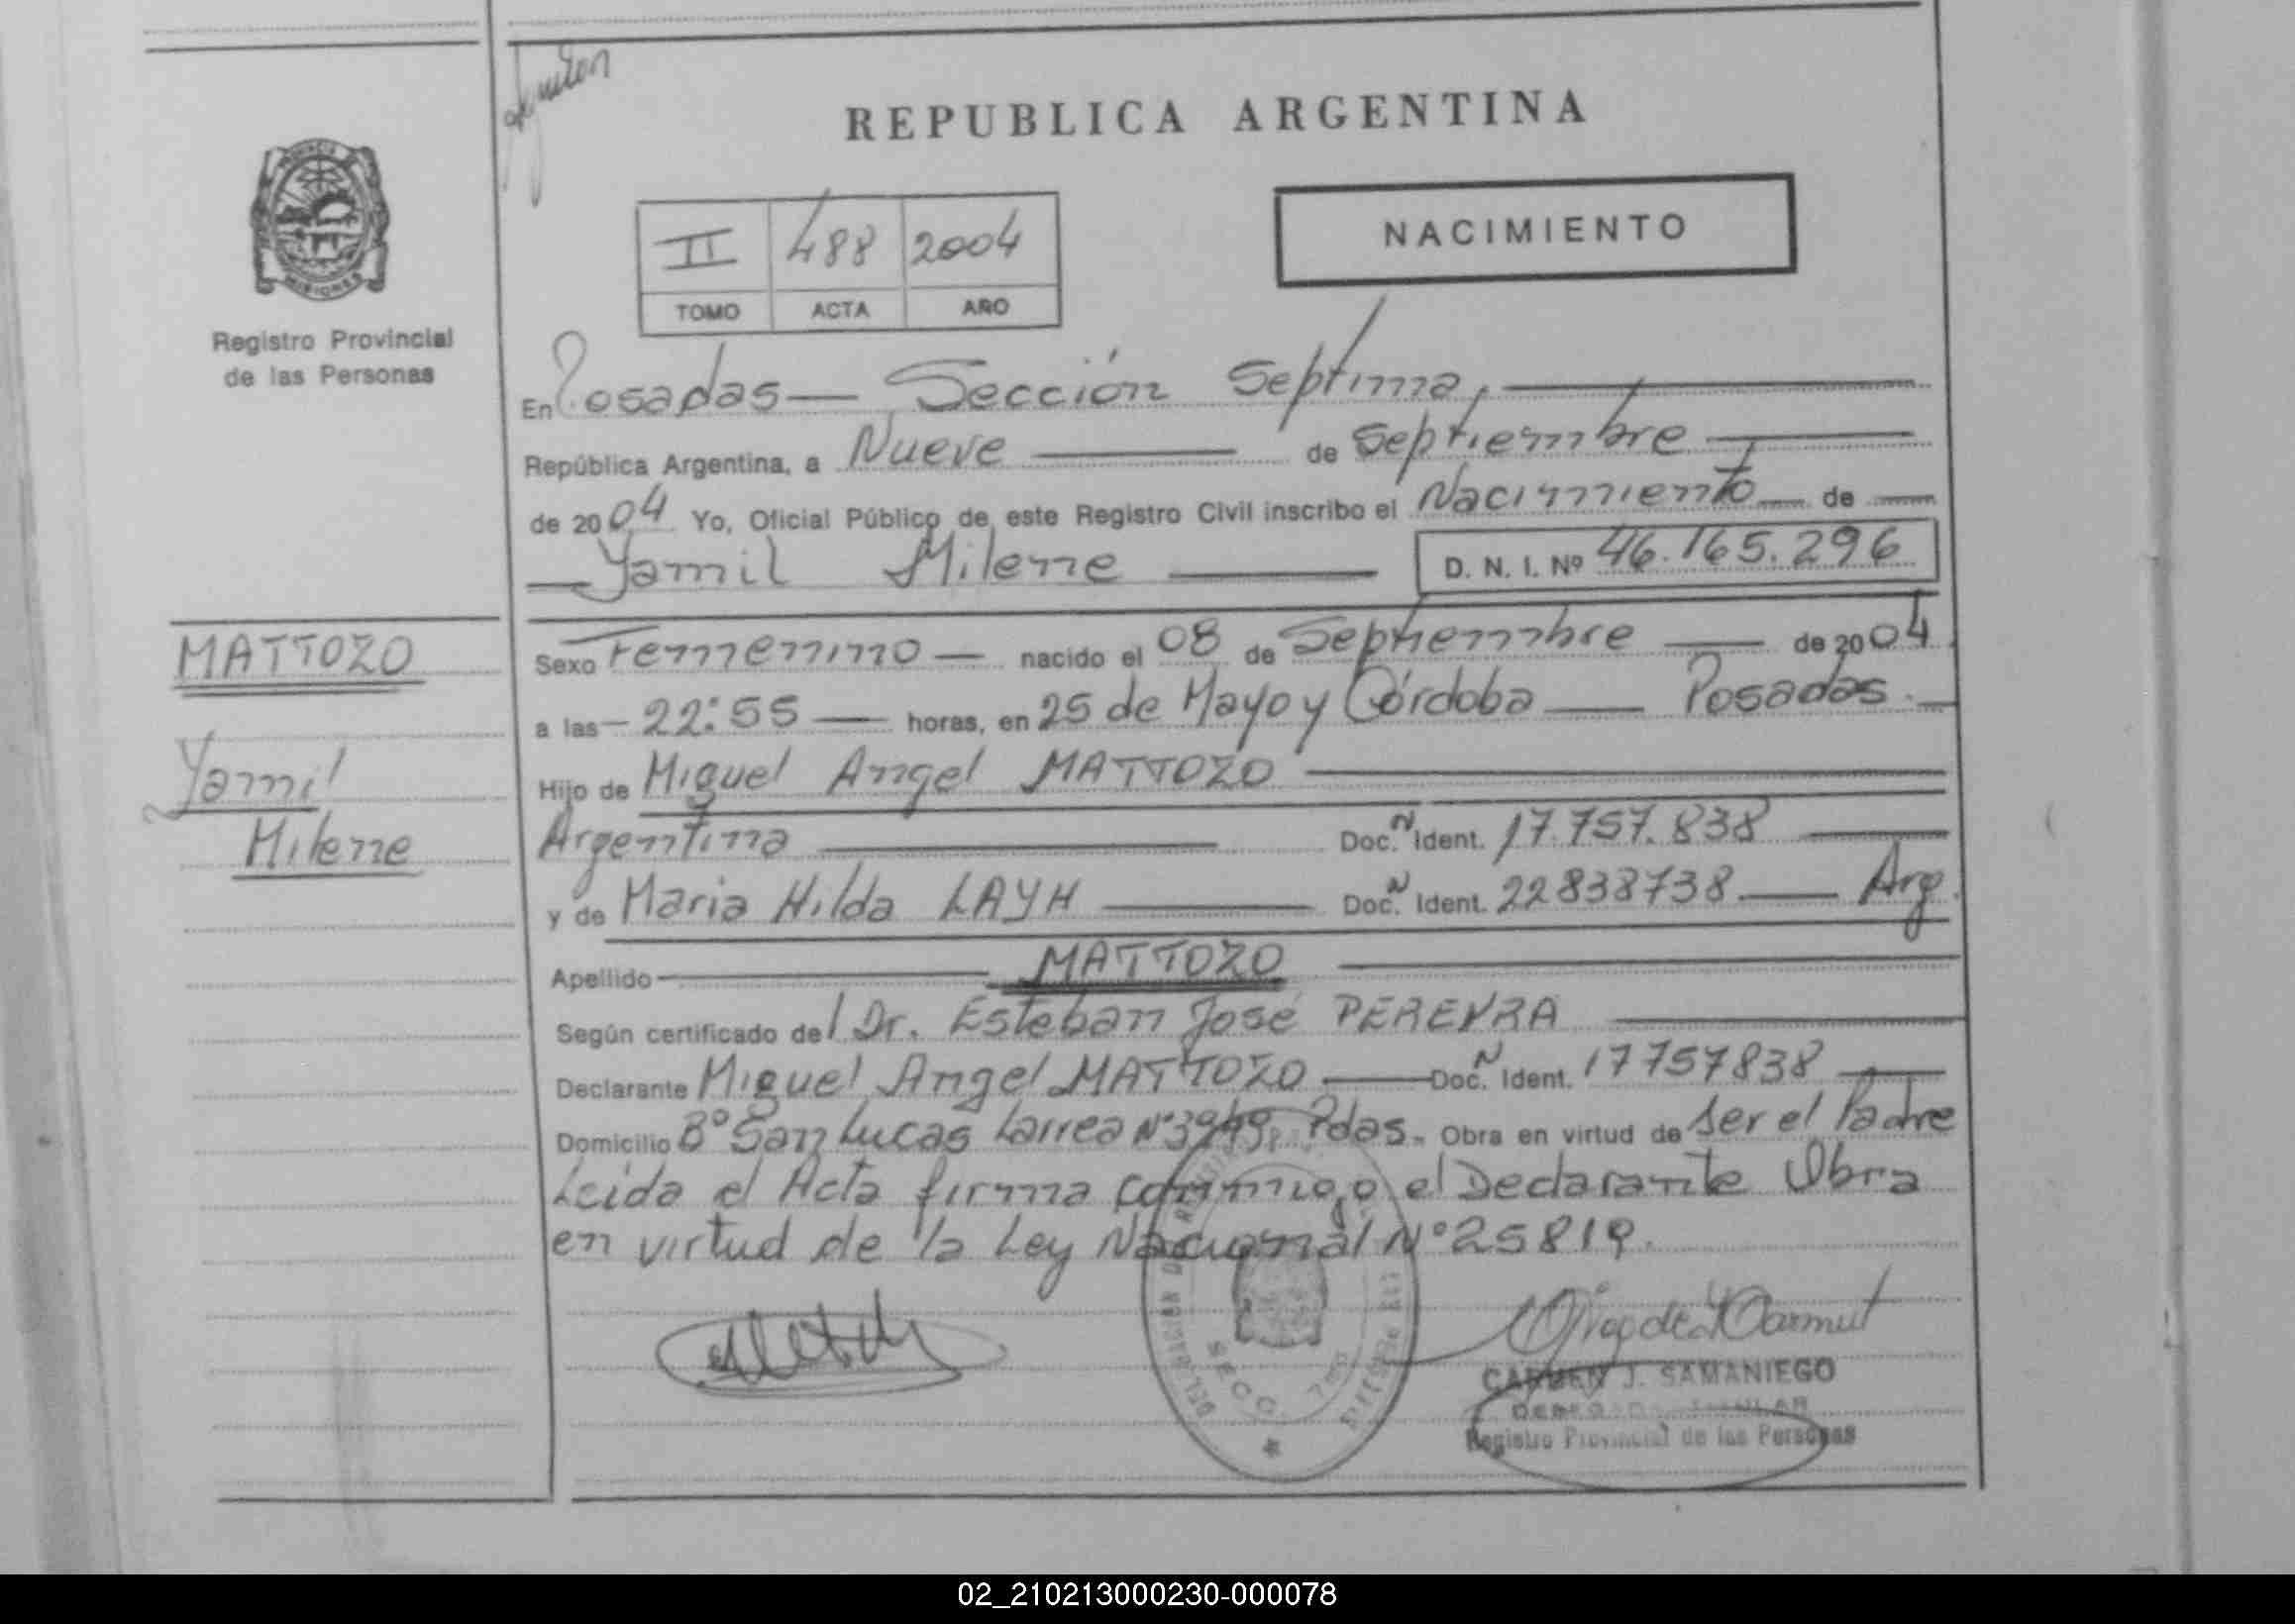 REPUBLICA ARGENTINA
PROVINCIA DE
MISIONES
Registro Provincial
de las Personas
II 488 2004
TOMO ACTA AÑO
NACIMIENTO
En Posadas — Sección Septima,
República Argentina, a Nueve de Septiembre
de 2004 Yo, Oficial Público de este Registro Civil inscribo el Nacimiento de
Yamil Milene D. N. I. Nº 46.165.296
MATTOZO
Yamil
Milene
Sexo Femenino nacido el 08 de Septiembre de 2004
a las 22:55 horas, en 25 de Mayo y Córdoba Posadas.
Hijo de Miguel Angel MATTOZO
Argentina Doc. N Ident. 17.757.838
y de Maria Hilda LAYH Doc. N Ident. 22838738 Arg.
Apellido MATTOZO
Según certificado del Dr. Esteban José PEREYRA
Declarante Miguel Angel MATTOZO Doc. N Ident. 17757838
Domicilio Bº San Lucas Larrea Nº 3949, Pdas. Obra en virtud de Ser el Padre
Leida el Acta firma conmigo el Declarante Obra
en virtud de la Ley Nacional Nº 25819.
SECC.
CARMEN J. SAMANIEGO
Registro Provincial de las Personas
02_210213000230-000078